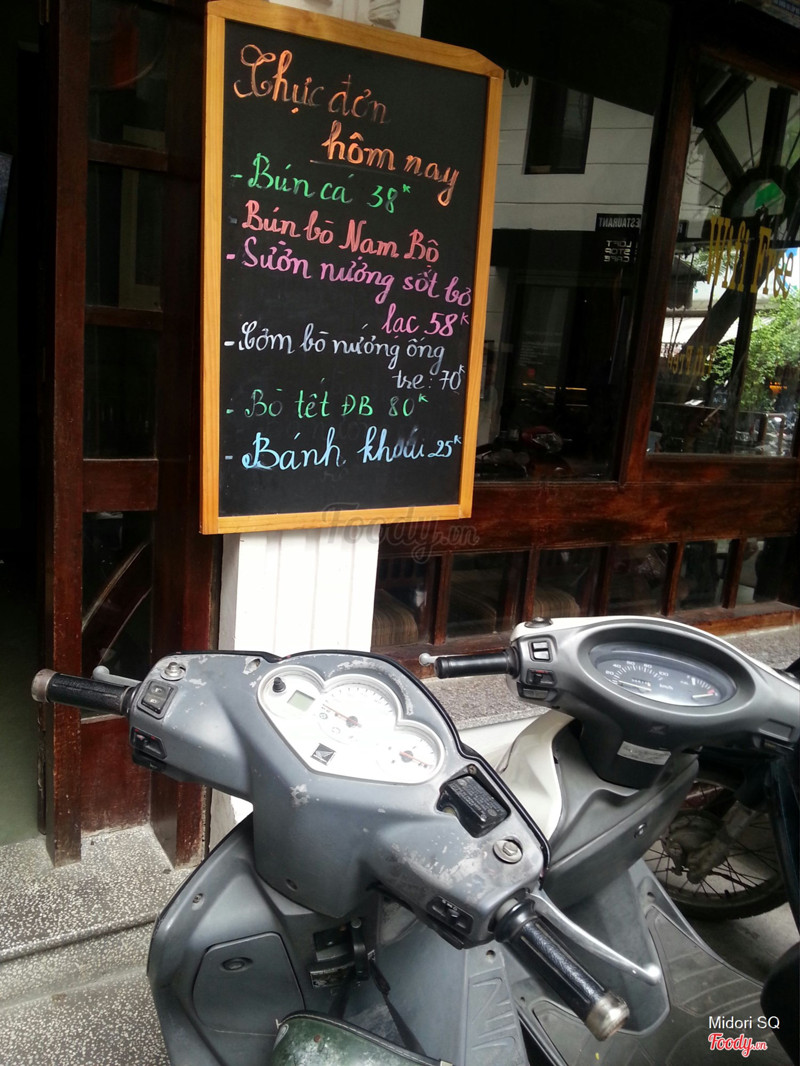 Thực đơn
hôm nay
- Bún cá 38K
- Bún bò Nam Bộ
- Sườn nướng sốt bơ
lạc 58K
- Cơm bò nướng ống
tre: 70K
- Bò tét ĐB 80K
- Bánh khoái 25K
RESTAURANT
LOFT
STOP
CAFE
Foody.vn
Midori SQ
Foody.vn